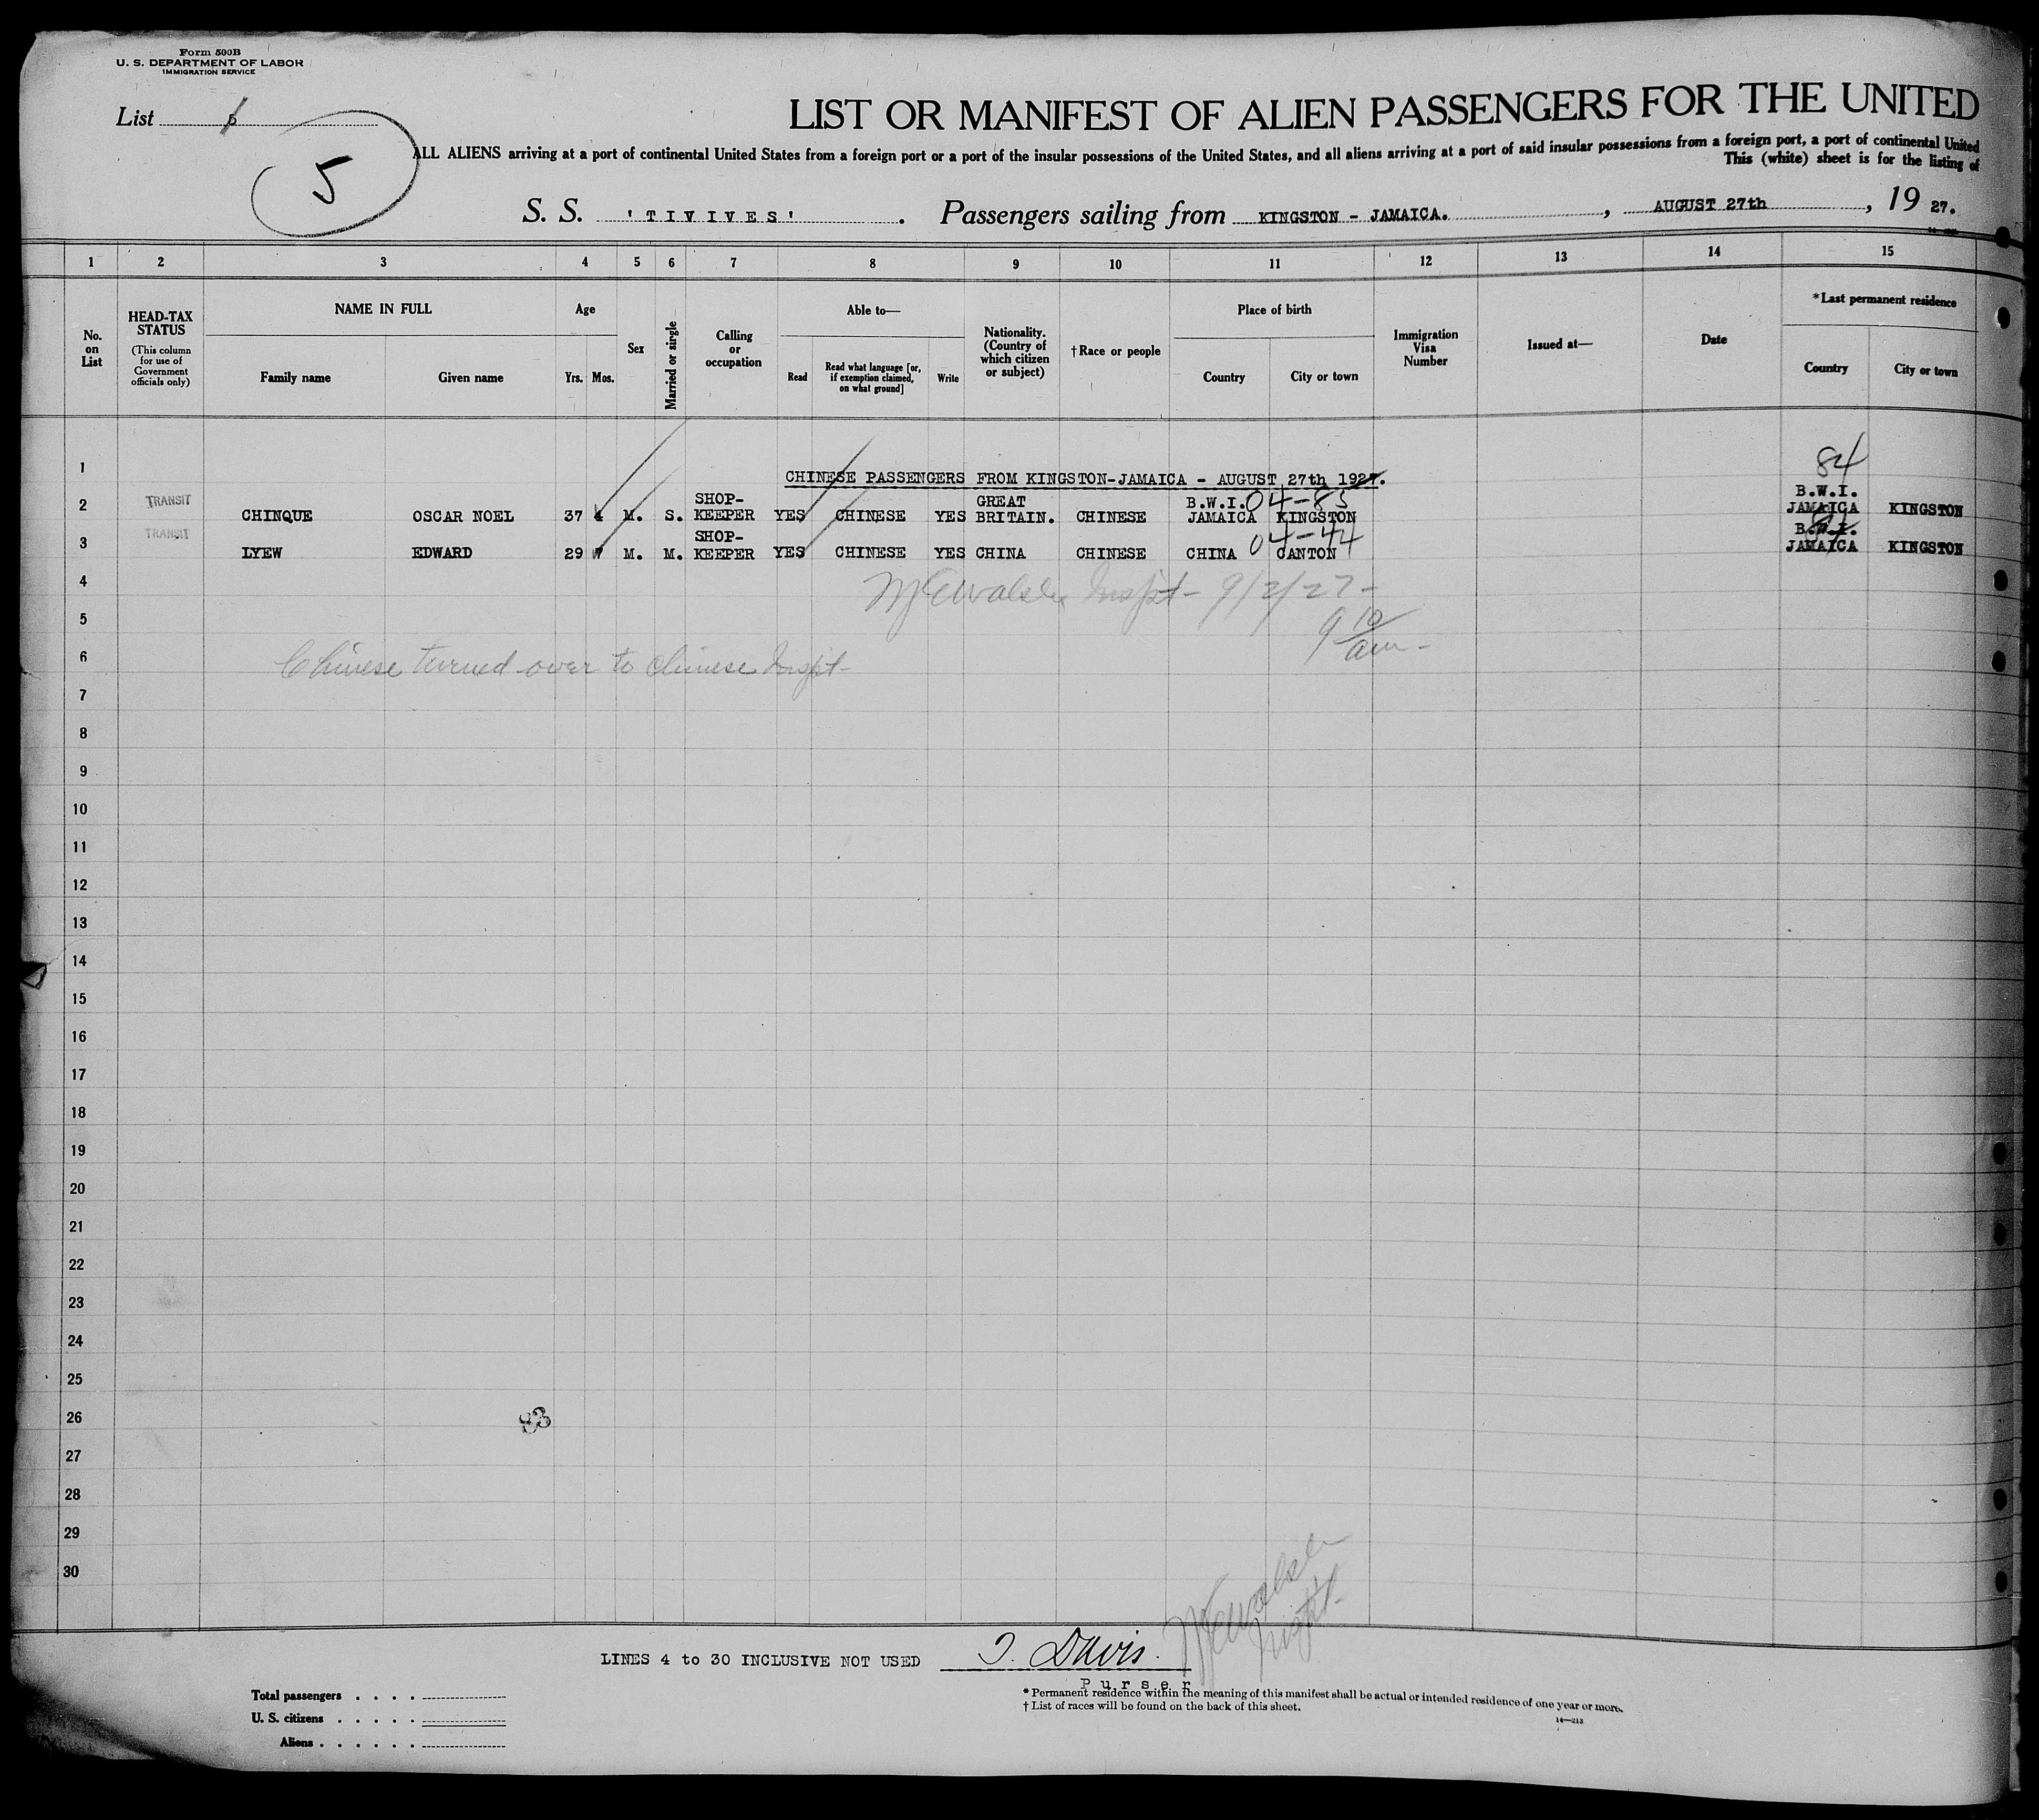 Form 500B
U. S. DEPARTMENT OF LABOR
IMMIGRATION SERVICE
List
5
LIST OR MANIFEST OF ALIEN PASSENGERS FOR THE UNITED
ALL ALIENS arriving at a port of continental United States from a foreign port or a port of the insular possessions of the United States, and all aliens arriving at a port of said insular possessions from a foreign port, a port of continental United
This (white) sheet is for the listing of
S. S. 'TIVIVES' . Passengers sailing from KINGSTON - JAMAICA. , AUGUST 27th , 19 27.
1 2 3 4 5 6 7 8 9 10 11 12 13 14 15
No. on List
HEAD-TAX STATUS
(This column for use of Government officials only)
NAME IN FULL
Family name Given name
Age
Yrs. Mos.
Sex
Married or single
Calling or occupation
Able to—
Read
Read what language [or, if exemption claimed, on what ground]
Write
Nationality. (Country of which citizen or subject)
†Race or people
Place of birth
Country City or town
Immigration Visa Number
Issued at—
Date
*Last permanent residence
Country City or town
1 CHINESE PASSENGERS FROM KINGSTON-JAMAICA - AUGUST 27th 1927. 84
2 TRANSIT CHINQUE OSCAR NOEL 37 4 M. S. SHOP-KEEPER YES CHINESE YES GREAT BRITAIN. CHINESE B.W.I. JAMAICA 04-83 KINGSTON B.W.I. JAMAICA KINGSTON
3 TRANSIT LYEW EDWARD 29 M. M. SHOP-KEEPER YES CHINESE YES CHINA CHINESE CHINA 04-44 CANTON B.W.I. JAMAICA KINGSTON
4 Inspt- 9/2/27-
5 9 10/am-
6 Chinese turned over to Chinese Inspt-
7
8
9
10
11
12
13
14
15
16
17
18
19
20
21
22
23
24
25
26 83
27
28
29
30
LINES 4 to 30 INCLUSIVE NOT USED
Davis.
Inspt-
Purser
Total passengers . . . .
U. S. citizens . . . . .
Aliens . . . . . .
* Permanent residence within the meaning of this manifest shall be actual or intended residence of one year or more.
† List of races will be found on the back of this sheet.
14—213